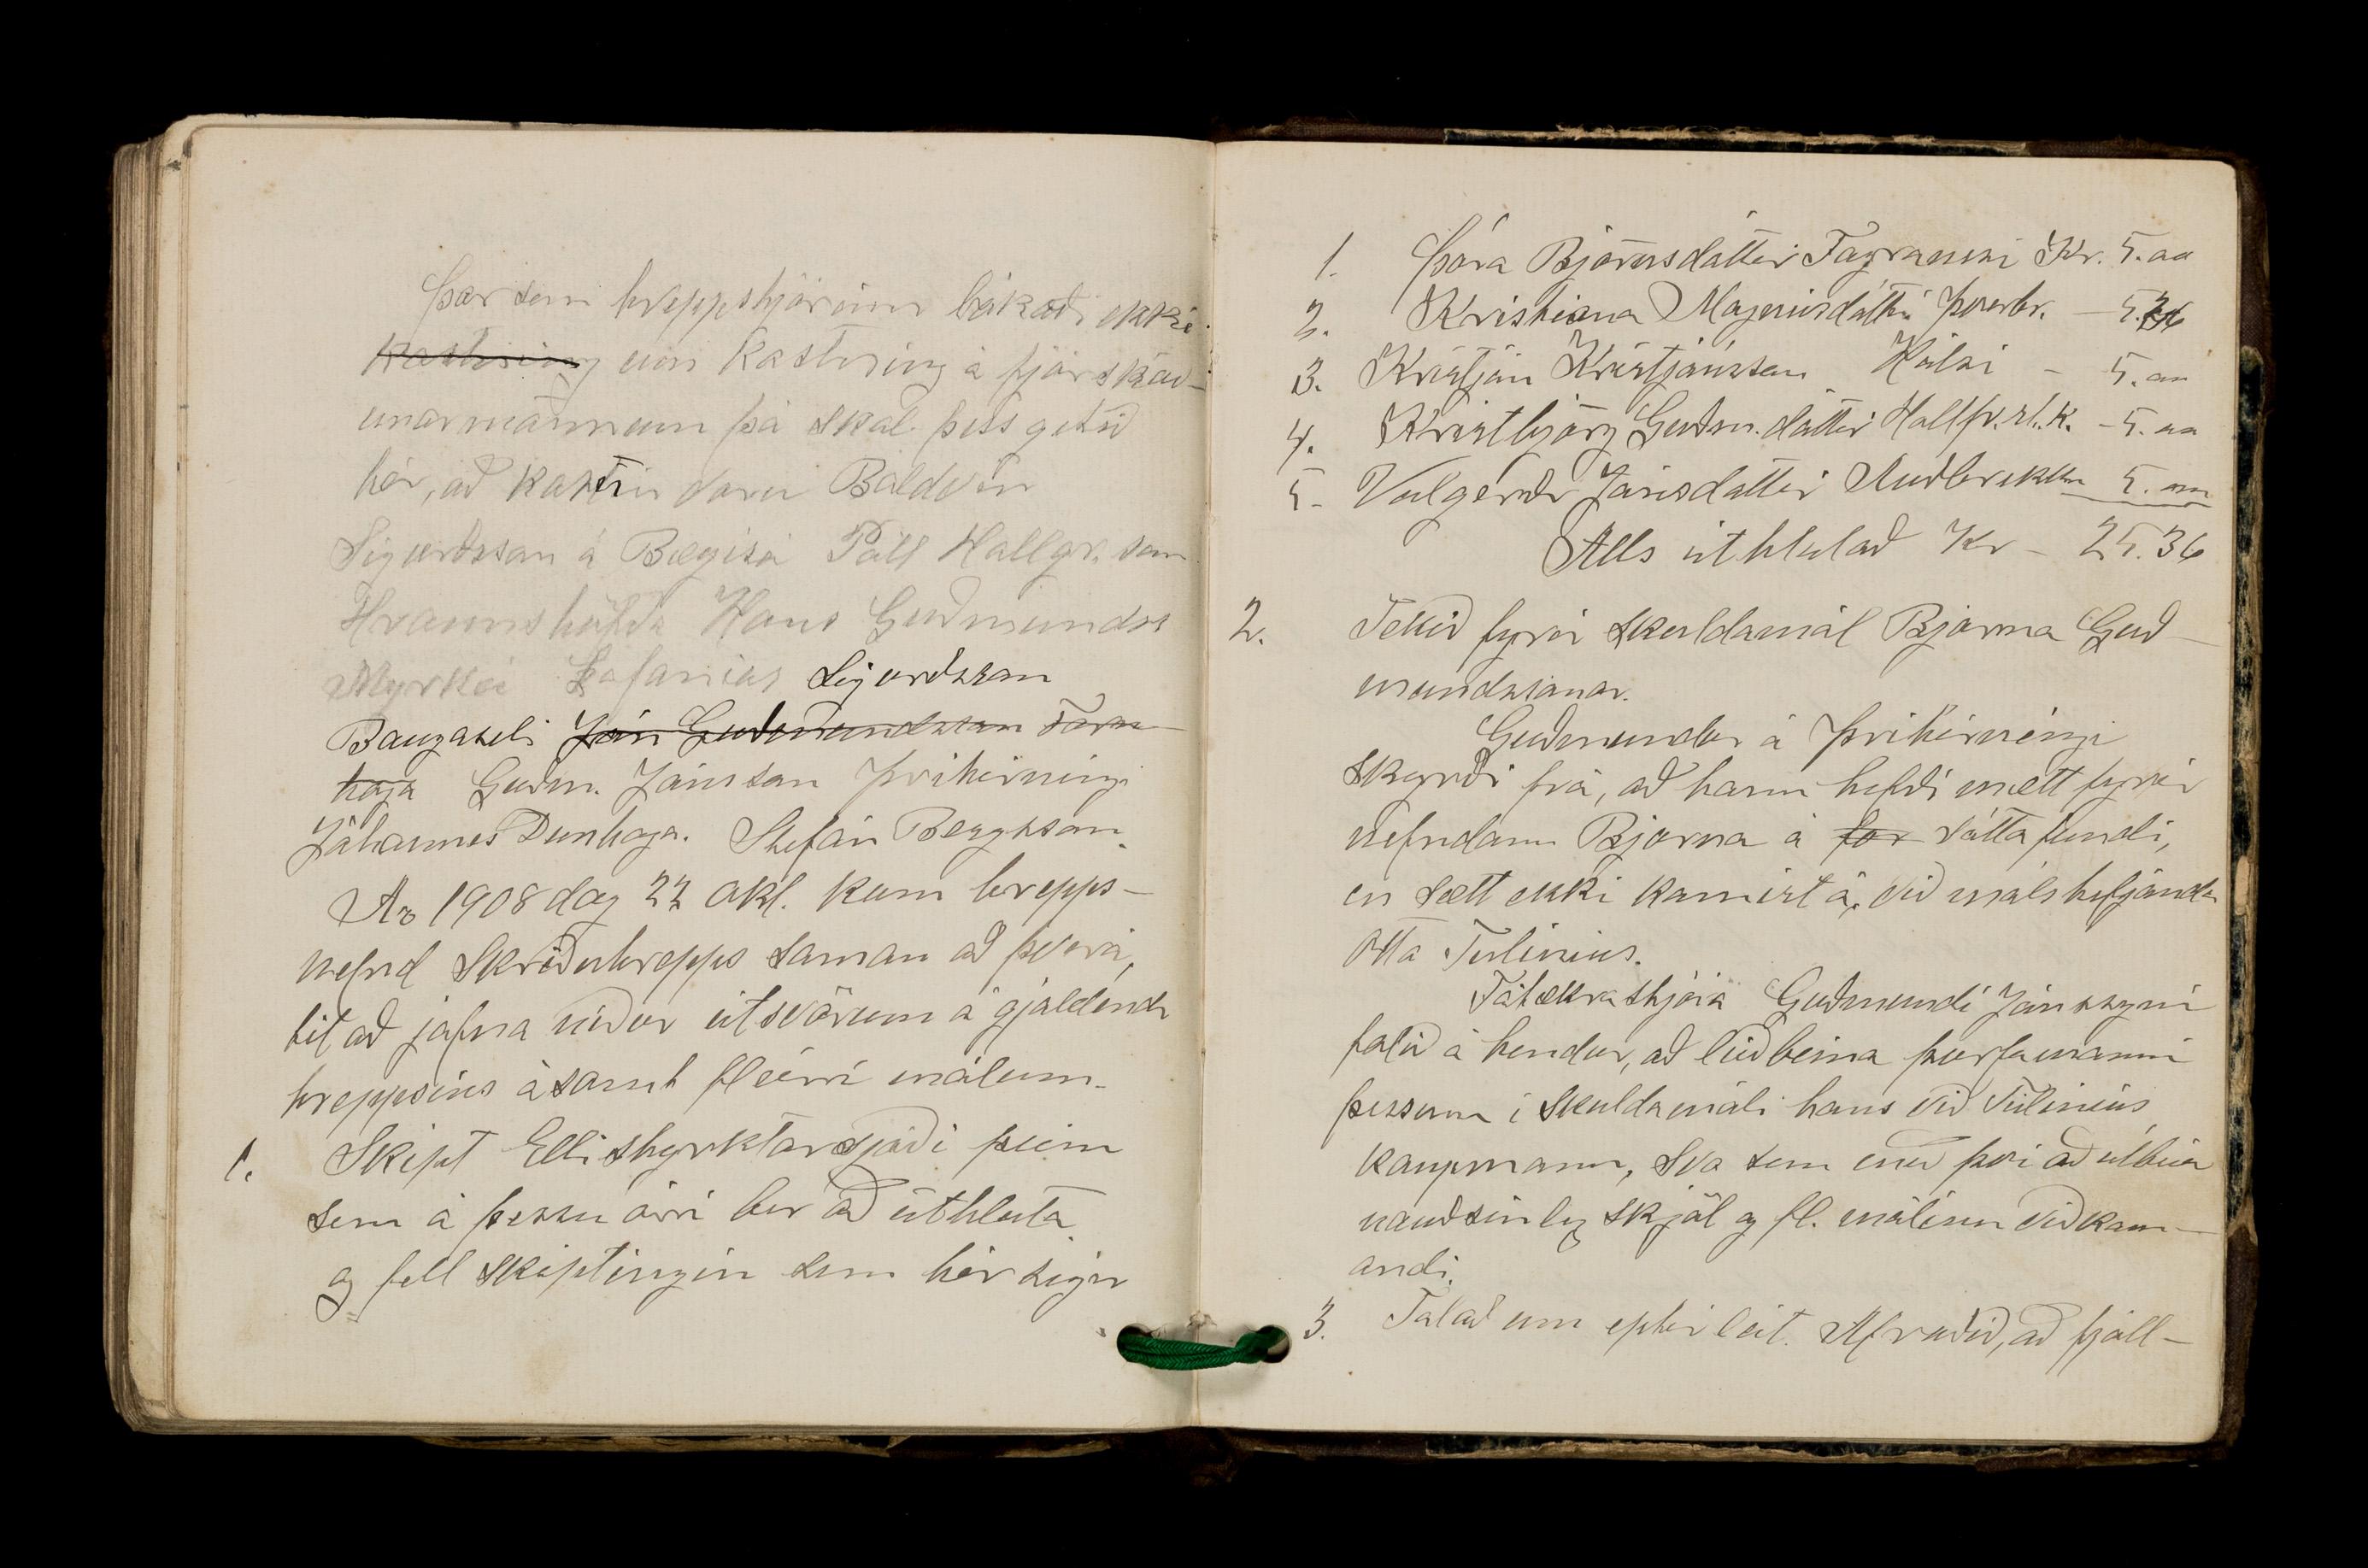 Þar sem hreppstjórinn bókaði ekki
kostning um kostning á fjárskoð-
unarmönnum þá skal þess getið
hér, að kostnir voru Baldvin
Sigurðsson á Bægisá Páll Hallgr.son
Hraunshöfða Hans Guðmundss
Myrká Zofanias Sigurðsson
Baugaseli Jón Guðmundsson Forn
haga Guðm. Jónsson Þríhirningi
Jóhannes Dunhaga. Stefán Bergsson.
Ár 1908 dag 22 okt. kom hrepps-
nefnd Skriðuhrepps saman að Þverá,
til að jafna niður útsvörum á gjaldendr
hreppsins ásamt fleirri málum.
1. Skipt Ellistyrktarsjóði þeim
sem á þessu árri ber að úthluta
og fell skiptingin sem hér sigir
1. Þóra Björnsdóttir Fagranesi Kr. 5.oo
2. Kristiana Magnúsdóttir Þverbr. - 5.36
3. Kristján Kristjánsson Hólsi - 5.oo
4. Kristbjörg Guðm.dóttir Hallfr.st.k. - 5.oo
5. Valgerðr Jónsdóttir Auðbrekku 5.oo
Alls úthlutað Kr - 25.36
2. Tekið fyrir skuldamál Bjorna Guð-
mundssonar.
Guðmundur á Þríhirningi
skyrði frá, að hann hefði mætt fyrir
nefndann Bjorna á for sátta fundi,
en sætt ekki komist á, við málshefjanda
Otta Tulinius.
Fátækrastjóra Guðmundi Jónssyni
falið á hendur, að liðbeina þurfamanni
þessum í skuldamáli hans við Túlinius
kaupmann, svo sem með þvi að útbúa
nauðsinleg skjöl og fl. málinu viðkom-
andi.
3. Talað um eptirleit. Afraðið, að fjall-